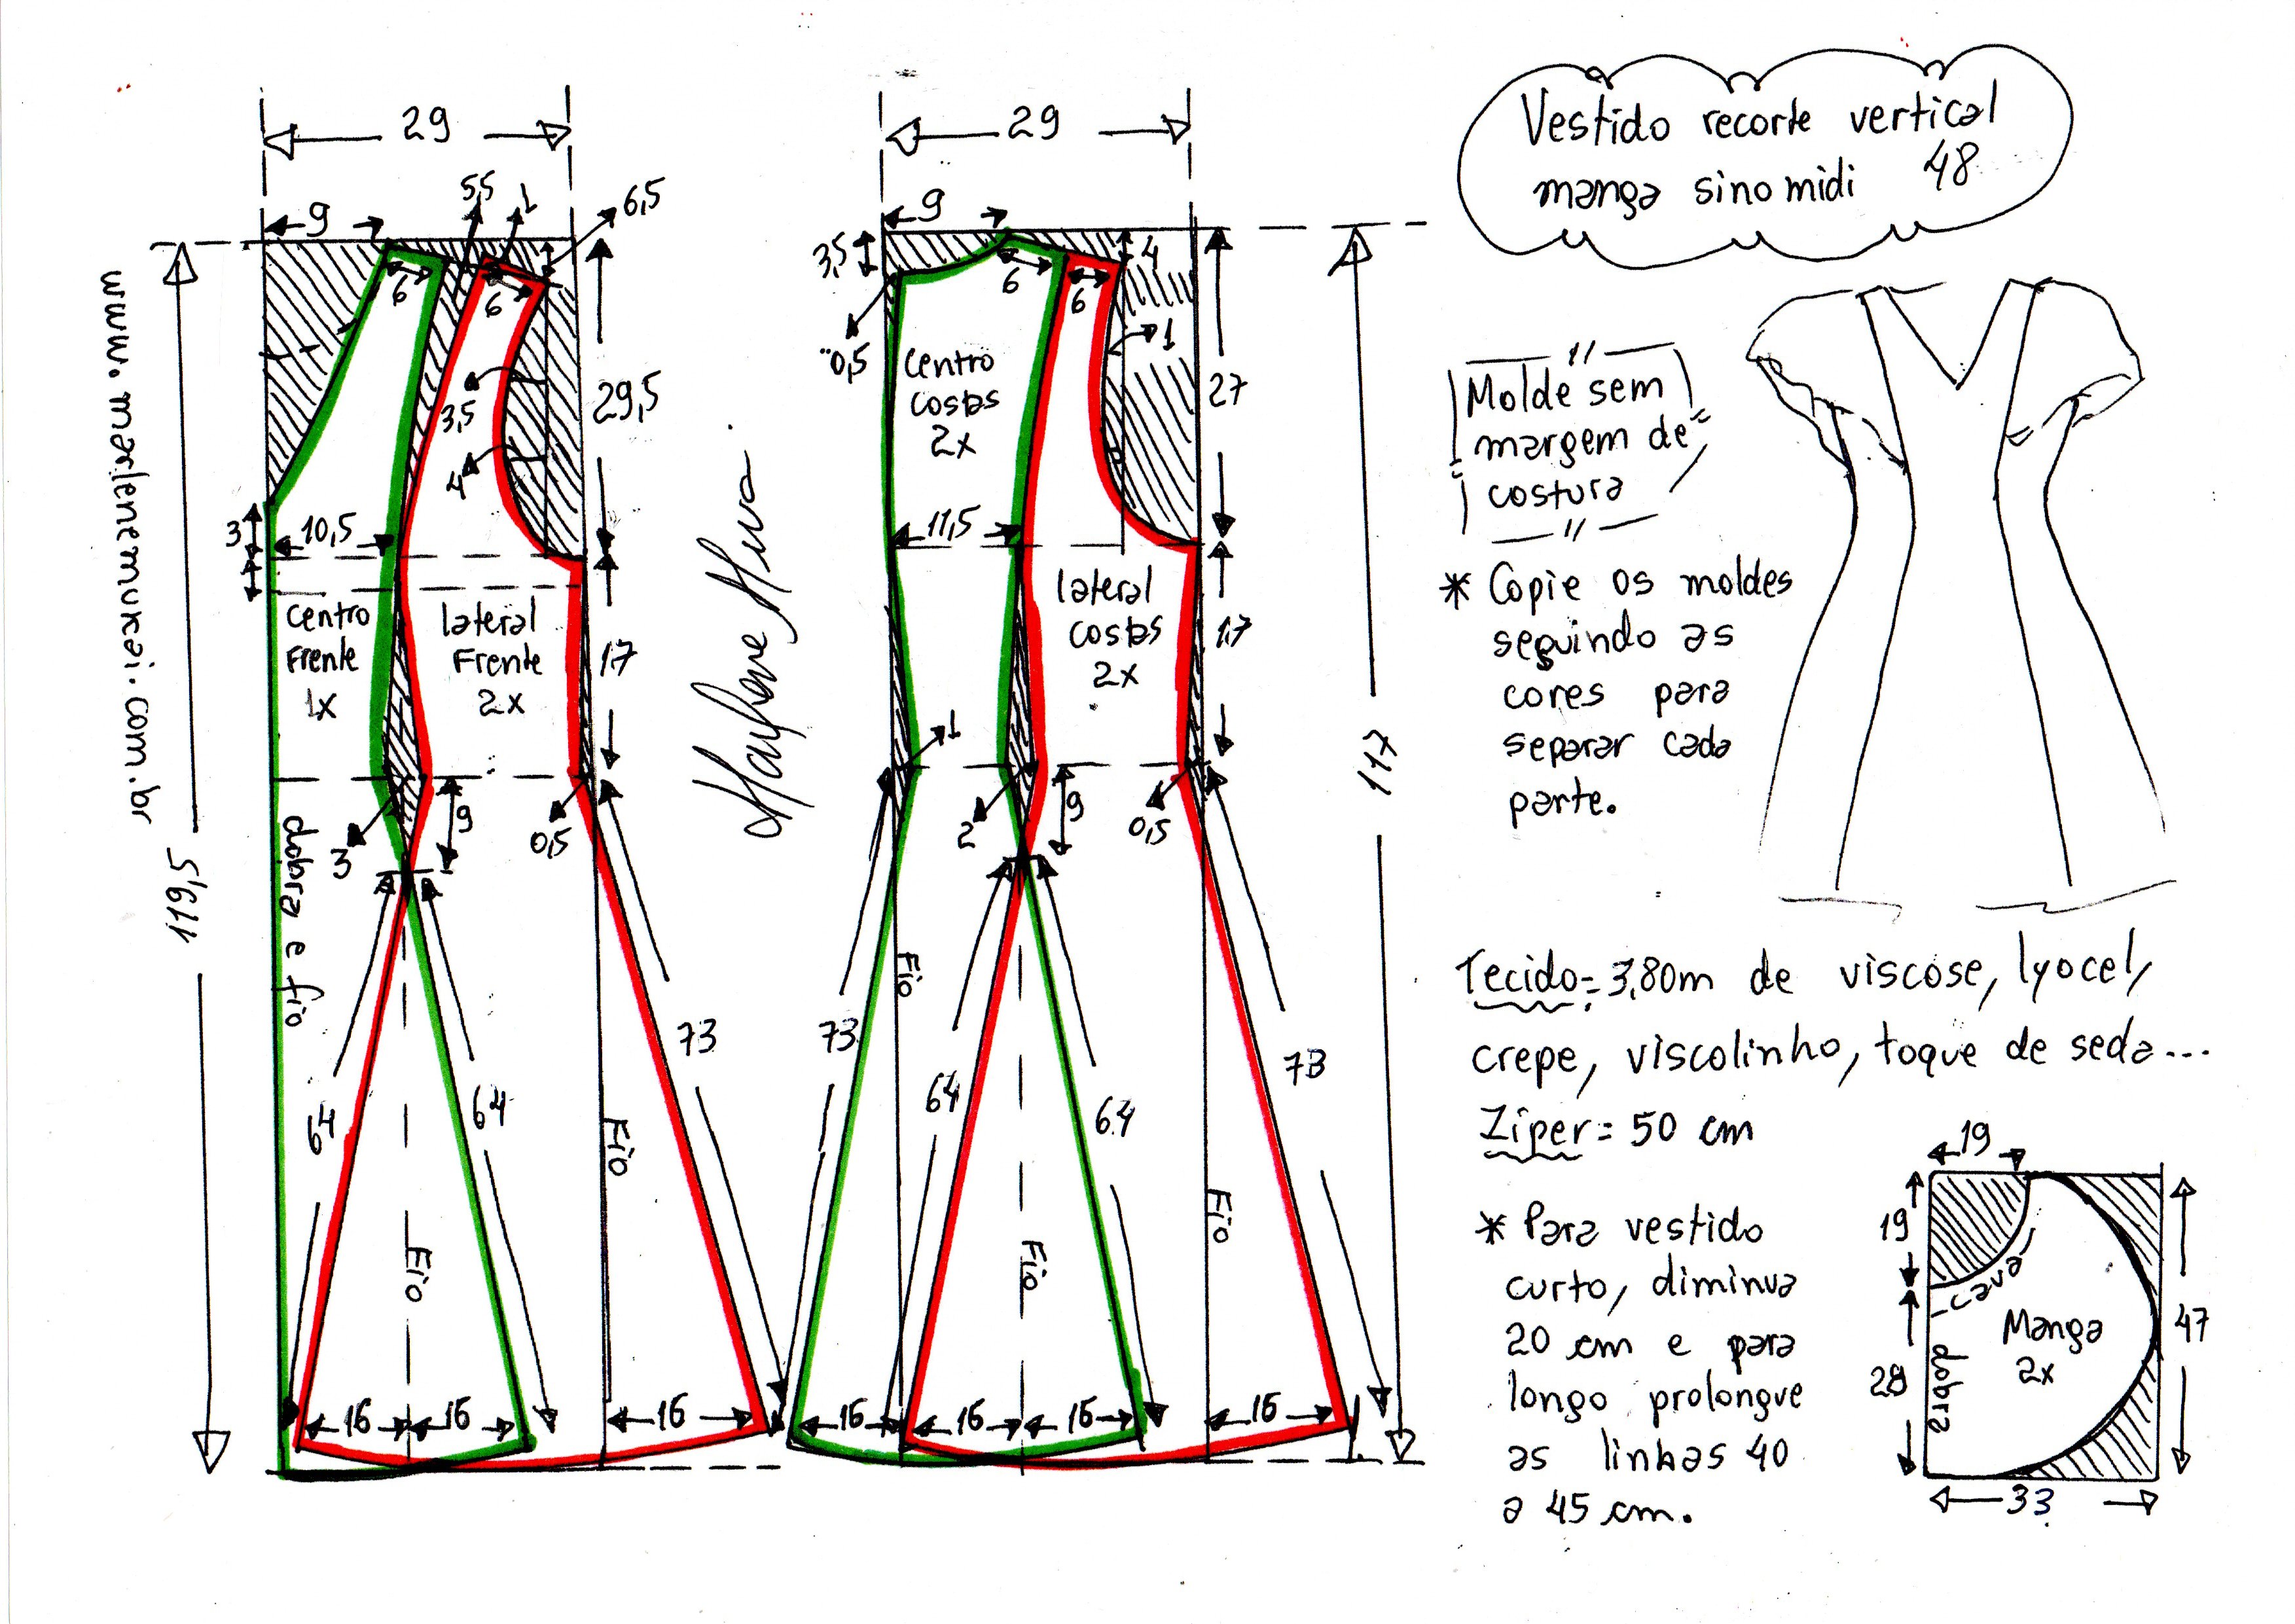 Vestido recorte vertical
manga sino midi 48
29
9
5,5
1
6,5
6
6
29,5
3,5
4
3
10,5
centro
Frente
1x
lateral
Frente
2x
17
9
3
0,5
dobra e fio
119,5
64
64
73
Fio
Fio
16
16
16
www.marlenemukai.com.br
29
9
3,5
4
6
6
0,5
1
27
centro
costas
2x
11,5
lateral
costas
2x
17
1
2
9
0,5
117
Fio
73
64
64
73
Fio
Fio
16
16
16
16
Molde sem
margem de
costura
* Copie os moldes
seguindo as
cores para
separar cada
parte.
Tecido = 3,80m de viscose, lyocel,
crepe, viscolinho, toque de seda...
Zíper = 50 cm
* Para vestido
curto, diminua
20 cm e para
longo prolongue
as linhas 40
a 45 cm.
19
19
cava
Manga
2x
dobra
28
47
33